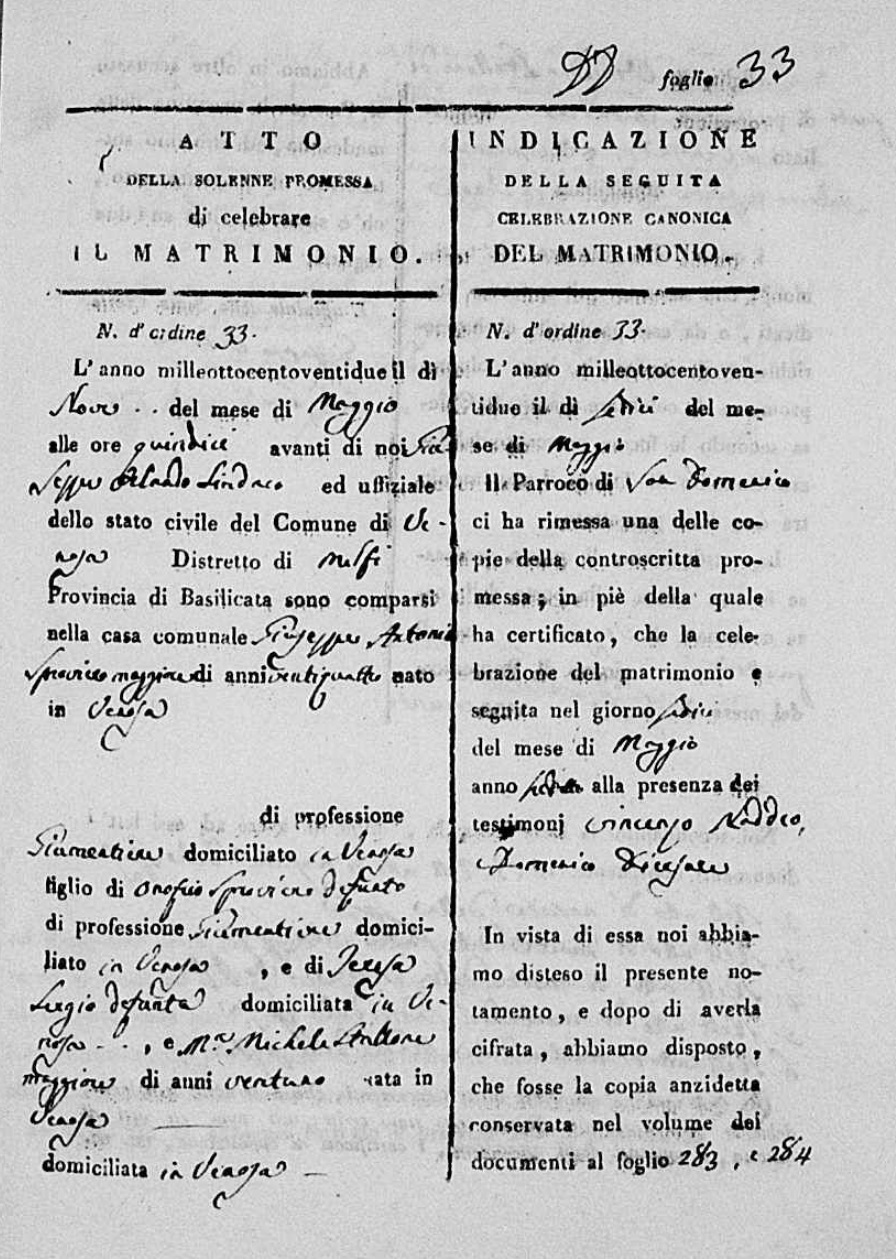 foglio 33
ATTO
DELLA SOLENNE PROMESSA
di celebrare
IL MATRIMONIO.
N. d'ordine 33.
L'anno milleottocentoventidue il dì
Nove .. del mese di Maggio
alle ore quindici avanti di noi Giu-
seppe Orlando Sindaco ed uffiziale
dello stato civile del Comune di Ve-
nosa Distretto di Melfi
Provincia di Basilicata sono comparsi
nella casa comunale Giuseppe Antonio
Sproviero maggiore di anni ventiquattro nato
in Venosa
di professione
Giumentiere domiciliato in Venosa
figlio di Onofrio Sproviero defunto
di professione Giumentiere domici-
liato in Venosa , e di Teresa
defunta domiciliata in Ve-
nosa - . , e M.a Michela
maggiore di anni ventuno nata in
Venosa
domiciliata in Venosa -
INDICAZIONE
DELLA SEGUITA
CELEBRAZIONE CANONICA
DEL MATRIMONIO.
N. d'ordine 33.
L'anno milleottocentoven-
tidue il dì sedici del me-
se di Maggio
Il Parroco di San Domenico
ci ha rimessa una delle co-
pie della controscritta pro-
messa; in piè della quale
ha certificato, che la cele-
brazione del matrimonio è
seguita nel giorno sedici
del mese di Maggio
anno alla presenza dei
testimonj Vincenzo Naddeo,
e Domenico
In vista di essa noi abbia-
mo disteso il presente no-
tamento, e dopo di averla
cifrata, abbiamo disposto,
che fosse la copia anzidetta
conservata nel volume dei
documenti al foglio 283, e 284